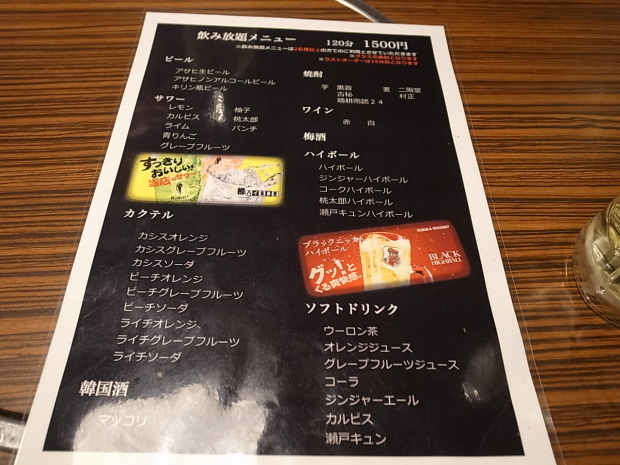 飲み放題メニュー 120分 1500円
※飲み放題メニューは2名様以上の方でのご利用とさせていただきます
※グラス交換制となります
※ラストオーダーは15分前となります
ビール
アサヒ生ビール
アサヒノンアルコールビール
キリン瓶ビール
サワー
レモン 柚子
カルピス 桃太郎
ライム パンチ
青りんご
グレープフルーツ
すっきり
おいしい!
当店のサワー
樽ハイ倶楽部
カクテル
カシスオレンジ
カシスグレープフルーツ
カシスソーダ
ピーチオレンジ
ピーチグレープフルーツ
ピーチソーダ
ライチオレンジ
ライチグレープフルーツ
ライチソーダ
韓国酒
マッコリ
焼酎
芋 黒霧 麦 二階堂
古秘 村正
晴耕雨読24
ワイン
赤 白
梅酒
ハイボール
ハイボール
ジンジャーハイボール
コークハイボール
桃太郎ハイボール
瀬戸キュンハイボール
NIKKA WHISKY
ブラックニッカ
ハイボール
グッ!と
くる爽快感。
BLACK
HIGHBALL
ソフトドリンク
ウーロン茶
オレンジジュース
グレープフルーツジュース
コーラ
ジンジャーエール
カルピス
瀬戸キュン